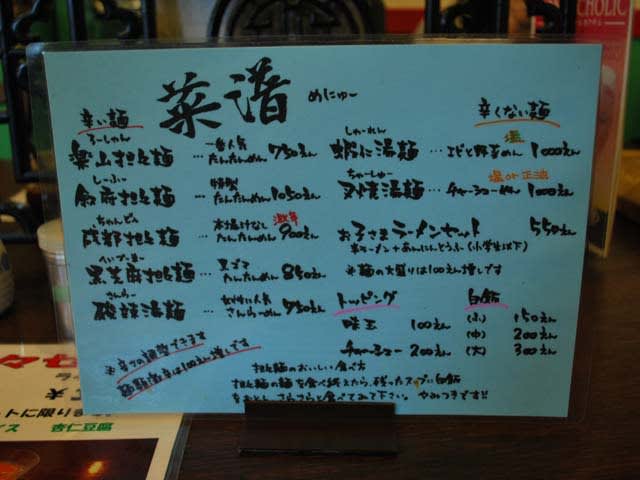 菜譜 めにゅー
辛い麺
ろーしゃん
楽山担々麺 … 一番人気 たんたんめん 750えん
しーふー
担々麺 … 特製 たんたんめん 1050えん
ちゃんどぅ
成都担々麺 … 本場汁なし たんたんめん 激辛 900えん
へいごまー
黒芝麻担々麺 … 黒ゴマ たんたんめん 850えん
さんらー
酸辣湯麺 … 女性に人気 さんらーめん 750えん
※辛さの調整できます
超激辛は100えん増しです
辛くない麺
しゃーれん
蝦仁湯麺 … 塩 エビと野菜めん 1000えん
ちゃーしゅー
叉焼湯麺 … 塩or正油 チャーシューめん 1000えん
お子さまラーメンセット 550えん
半ラーメン+あんにんどうふ(小学生以下)
※麺の大盛りは100えん増しです
トッピング
味玉 100えん
チャーシュー 200えん
白飯
(小) 150えん
(中) 200えん
(大) 300えん
担々麺のおいしい食べ方
担々麺の麺を食べ終えたら、残ったスープに白飯
をおとし、さらさらと食べてみて下さい。やみつきです!!
CHOLIC
ットに限ります
イス 杏仁豆腐